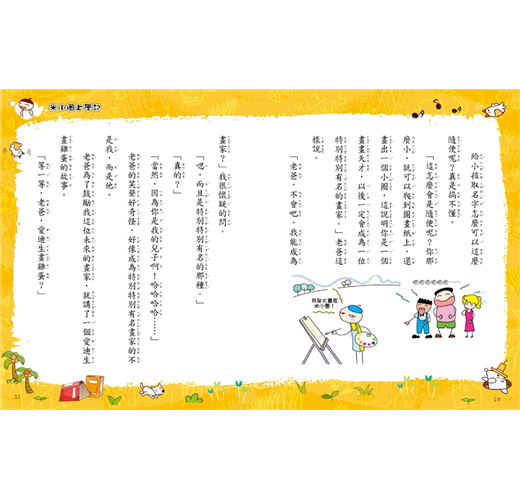 給小孩取名字怎麼可以這麼
隨便呢？真是搞不懂。
「這怎麼會是隨便呢？你那
麼小，就可以爬到圖畫紙上，還
畫出一個小圈，這說明你是一個
畫畫天才，以後一定會成為一位
特別特別有名的畫家。」老爸這
樣說。
「老爸，不會吧，我能成為
我是大畫家
米小圈！
哈哈哈哈哈哈……
10
米小圈上學記
畫家？」我很懷疑的問。
「嗯，而且是特別特別有名的那種。」
「真的？」
「當然，因為你是我的兒子啊！哈哈哈哈……」
老爸的笑聲好奇怪，好像成為特別特別有名畫家的不
是我，而是他。
老爸為了鼓勵我這位未來的畫家，就講了一個愛迪生
畫雞蛋的故事。
「等一等，老爸，愛迪生畫雞蛋？」
11